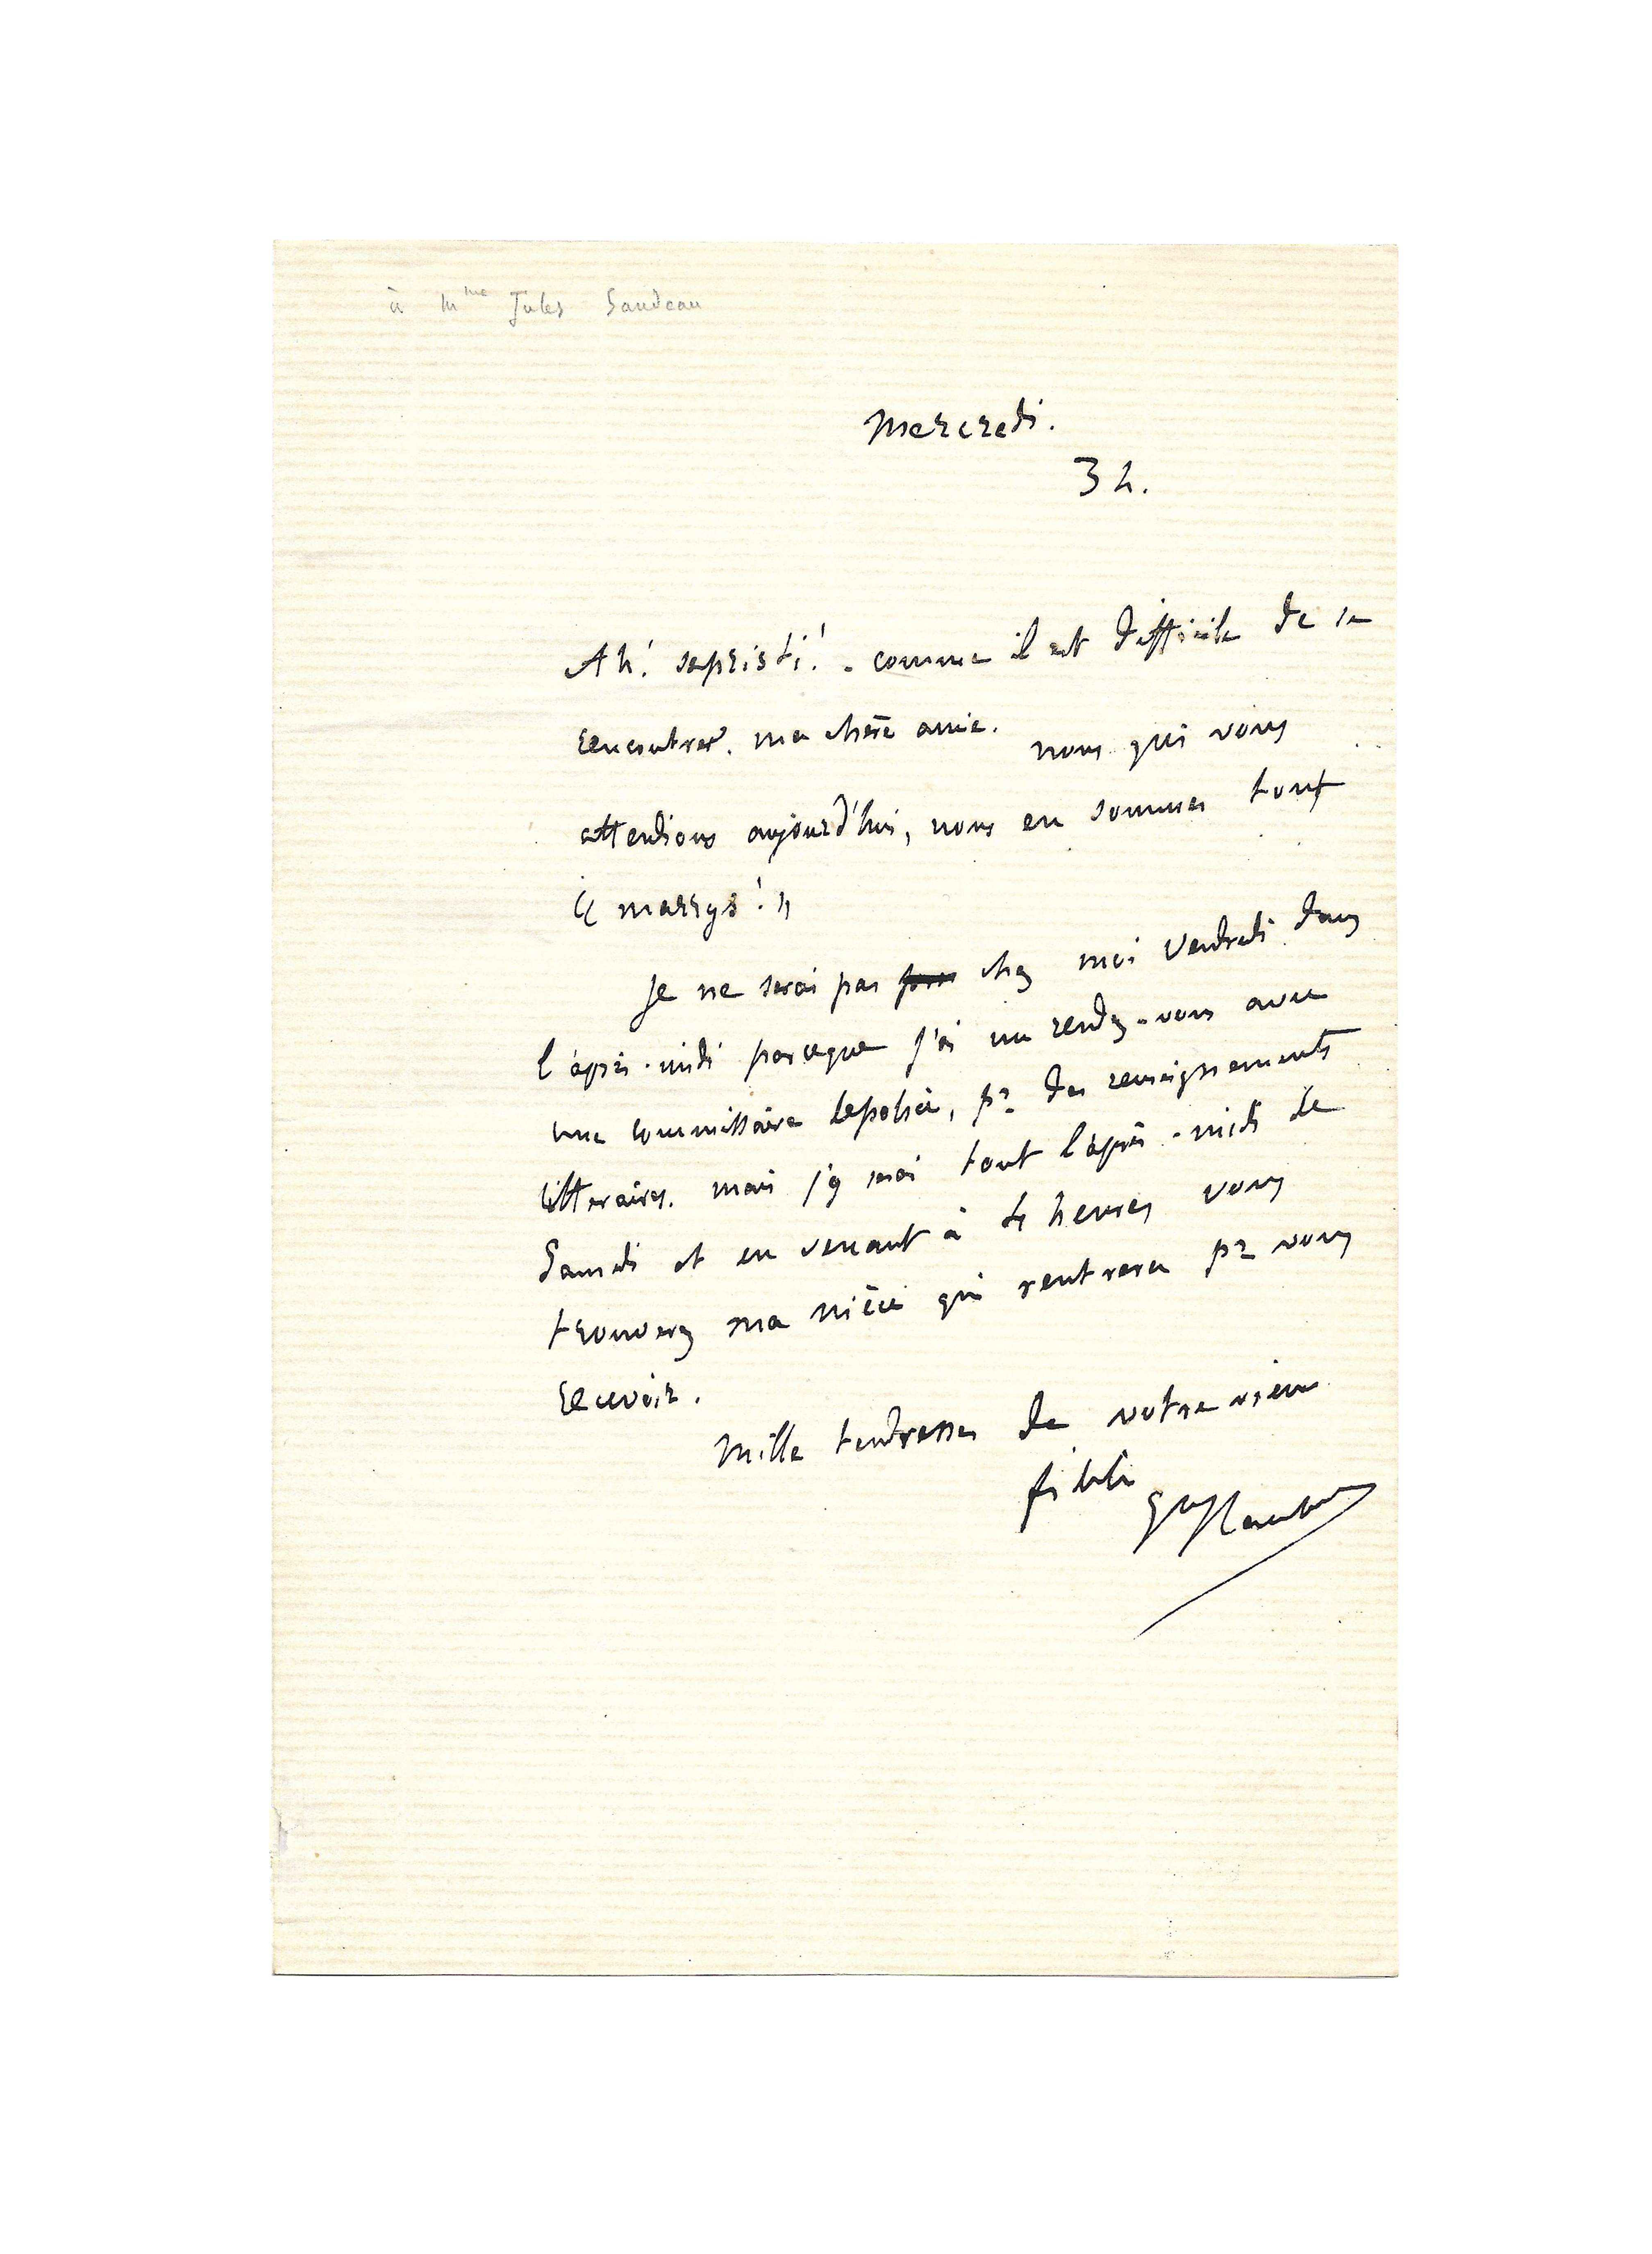 à Mme Jules Sandeau
Mercredi.
3 h.
Ah! sapristi! - comme il est difficile de se
rencontrer. ma chère amie. nous qui vous
attendions aujourd'hui, nous en sommes tout
« marrys! »
Je ne serai pas chez moi Vendredi dans
l'après-midi parceque j'ai un rendez-vous avec
un commissaire de police, pr des renseignements
littéraires. mais j'y serai tout l'après-midi de
Samedi et en venant à 4 heures vous
trouverez ma nièce qui rentrera pr vous
recevoir.
Mille tendresses de votre vieux
fidèle
Gve Flaubert